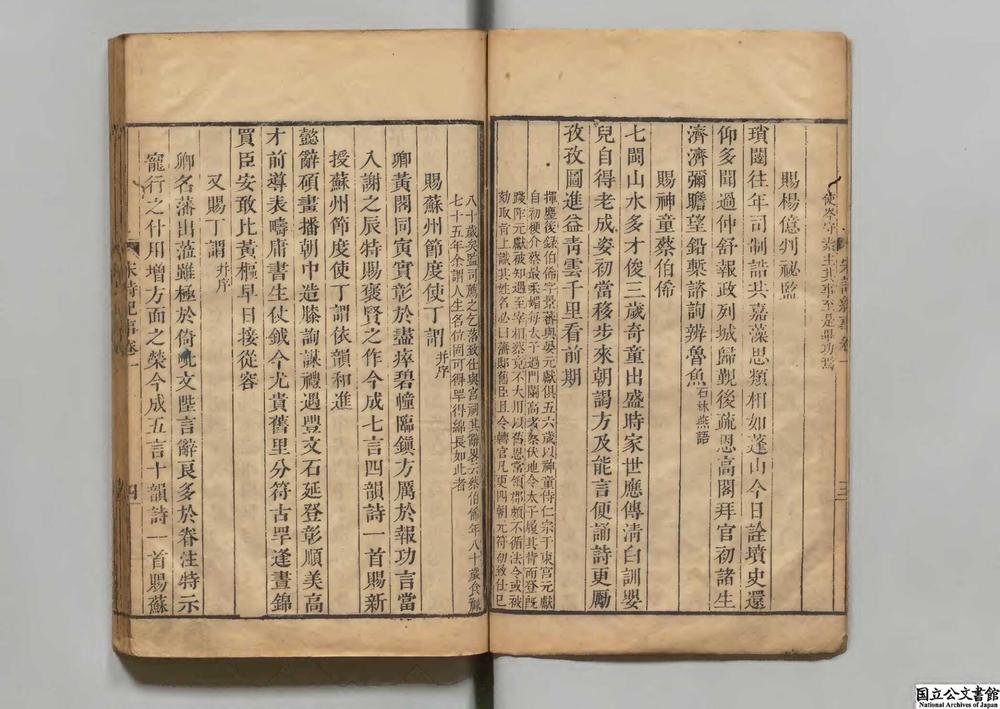 賜楊億判祕監
瑣闥往年司制誥共嘉藻思類相如蓬山今日詮墳史還
仰多聞過仲舒報政列城歸覲後疏恩高閣拜官初諸生
濟濟彌瞻望鉛槧諮詢辨魯魚石林燕語
賜神童蔡伯俙
七閩山水多才俊三歲奇童出盛時家世應傳淸白訓嬰
兒自得老成姿初當移步來朝謁方及能言便誦詩更勵
孜孜圖進益靑雲千里看前期
揮麈後錄伯俙字景蕃與晏元獻俱五六歲以神童侍仁宗于東宮元獻
自初梗介蔡最柔媚每太子過門閫高者蔡伏地令太子履其背而登旣
踐阼元獻被知遇至宰相蔡竟不大用以舊恩常領郡頗不循法令或被
劾取旨上識其姓名必曰藩邸舊臣且令轉官凡更四朝元符初致仕已
三
八十歲矣監司薦之乞落致仕與宮祠其辭畧云蔡伯俙年八十歲食祿
七十五年余謂人生名位固可得單得綿長如此者
賜蘇州節度使丁謂 并序
卿黃閣同寅實彰於盡瘁碧幢臨鎭方厲於報功言當
入謝之辰特賜褒賢之作今成七言四韻詩一首賜新
授蘇州節度使丁謂依韻和進
懿辭碩畫播朝中造膝詢謀禮遇豐文石延登彰順美高
才前導表疇庸書生仗鉞今尤貴舊里分符古罕逢晝錦
買臣安敢比黃樞早日接從容
又賜丁謂 并序
卿名藩出蒞雖極於倚毗文陛言辭良多於眷注特示
寵行之什用增方面之榮今成五言十韻詩一首賜蘇
宋詩紀事卷一
四
国立公文書館
National Archives of Japan